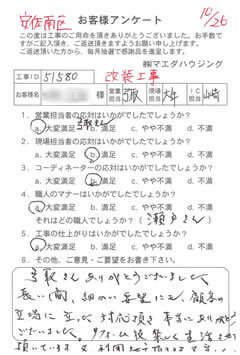 安佐南区 お客様アンケート 10/26
この度は工事のご用命を頂きありがとうございました。お手数で
すがご記入頂き、ご返送頂きますようお願い申し上げます。
ご返送頂いた方から、毎月抽選で感謝品を進呈します。
㈱マエダハウジング
工事ID 51580 改装工事
お客様名 様 営業担当 現場担当 IC担当
1. 営業担当者の応対はいかがでしたでしょうか?
a. 大変満足 b. 満足 c. やや不満 d. 不満
2. 現場担当者の応対はいかがでしたでしょうか?
a. 大変満足 b. 満足 c. やや不満 d. 不満
3. コーディネーターの応対はいかがでしたでしょうか?
a. 大変満足 b. 満足 c. やや不満 d. 不満
4. 職人のマナーはいかがでしたでしょうか?
a. 大変満足 b. 満足 c. やや不満 d. 不満
それはどの職人でしょうか?(瀬戸さん)
5. 工事の仕上がりはいかがでしたでしょうか?
a. 大変満足 b. 満足 c. やや不満 d. 不満
6. その他、ご意見・ご要望をお書き下さい。
さん ありがとうございました
長い間、細かい要望にも、顧客の
立場に立って 対応頂き 本当にありがとう
ございました。リフォーム後 も 生活させ
頂いています